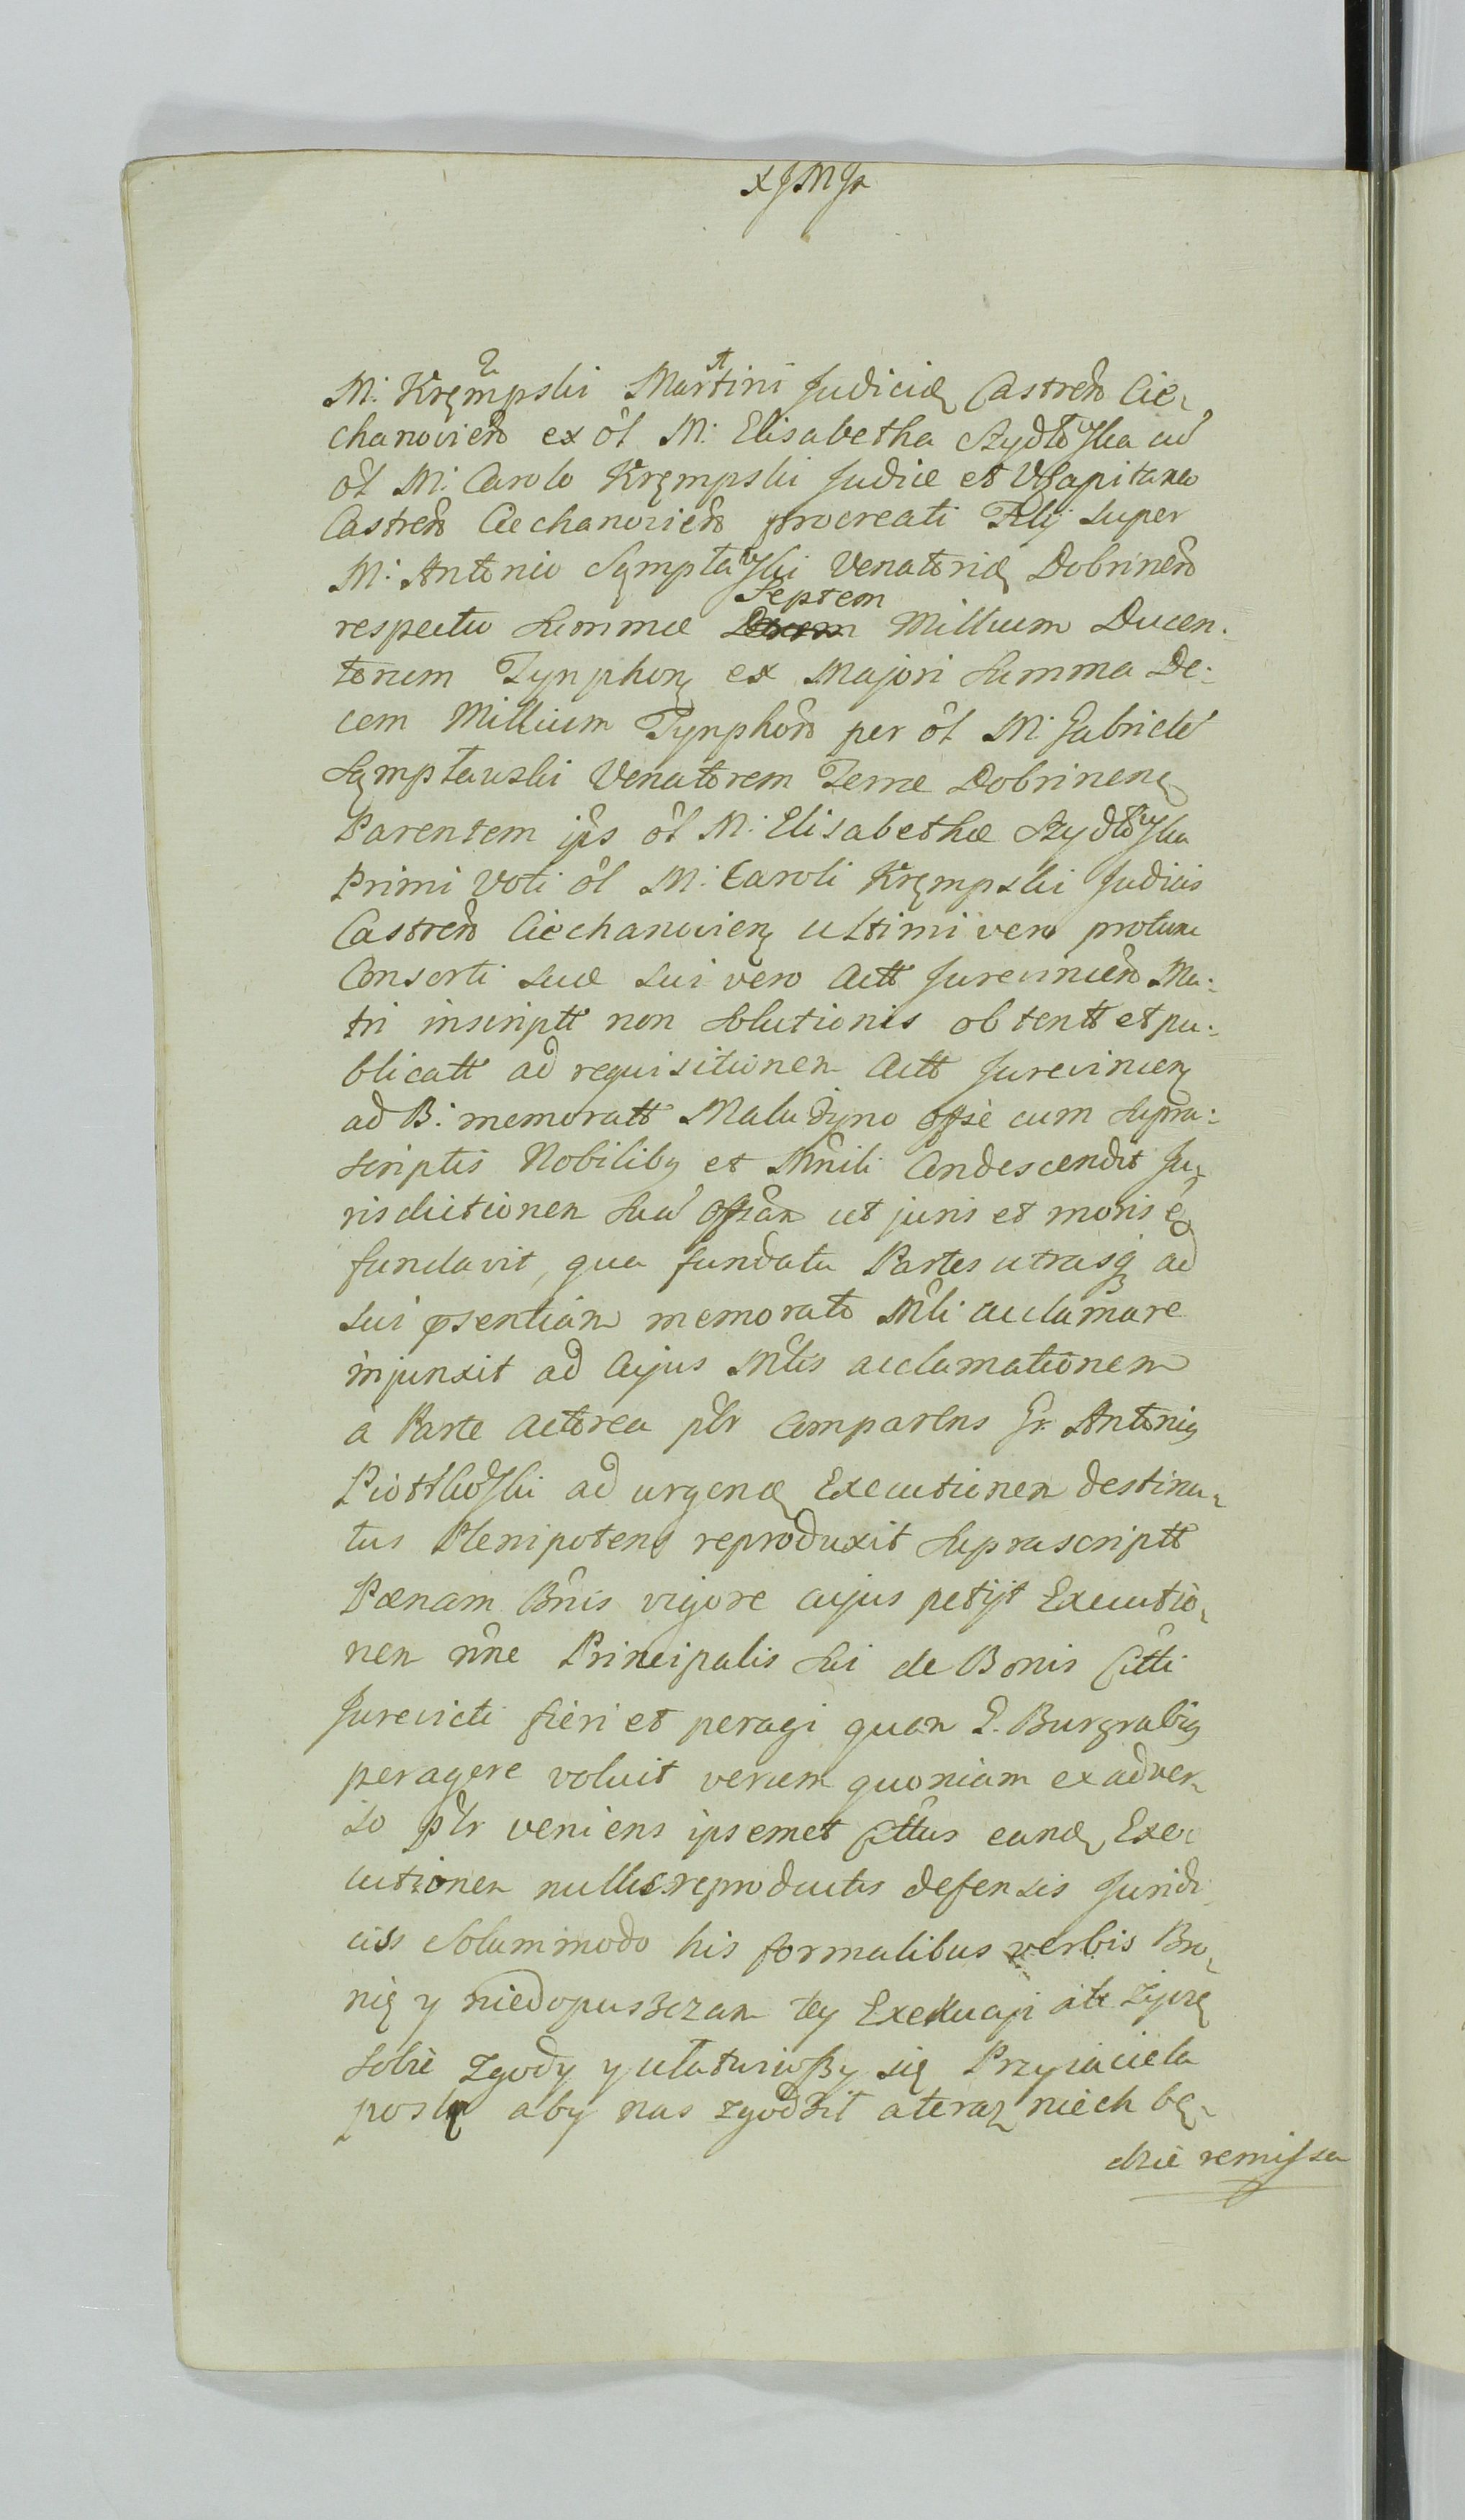 XJMJr
M: Kręmpski Martini Judicidę Castreń Cie,
chanovień ex ol M: Elisabetha Szydłowska cu
ol M: Carolo Kręmpski Judice et VCapitaneo
Castreń Ciechanovień procreati Filij super
M: Antonio Sęmpławski Venatoridę Dobrineń
respectu Summæ Decem Septem Millium Ducen.
torum Tynphorų ex Majori Summa De:
cem Millium Tynphorū per ol M: Gabriele
Sęmpławski Venatorem Terræ Dobrinenę
Parentem ips ol M: Elisabethæ Szydłowska
Primi Voti ol M: Caroli Kręmpski Judicis
Castreń Ciechanovienę ultimi vero protunc
Consorti suæ sui vero Actt Jurevincen Ma:
tri inscriptt non Solutionis obtentt et pu:
blicatt ad requisitionem Actt Jurevincenę
ad B: memoratt Maludyno offse cum supra:
scriptis Nobilibꝫ et Mnili Condescendit Ju,
risdictionem suā offsam ut juris et moris e
fundavit, qua fundata Partes utrasqꝫ ad
sui psentiam memorato Mli acclamare
injunxit ad cujus Mlis acclamationem
a Parte Actorea plr Comparens Gr. Antoniꝫ
Piotrkowski ad urgendę Executionem destina,
tus Plenipotens reproduxit suprascriptt
Pœnam Bnis vigore cujus petijt Executio,
nem nne Principalis sui de Bonis Citti
Jurevicti fieri et peragi quam G. Burgrabiꝫ
peragere voluit verum quoniam ex adver,
so plr veniens ipsemet Cittus eandę Exe
cutionem nullis reproductis defensis Juridi
ciss Solummodo his formalibus verbis Bro,
nię y niedopuszczam tey Exekucyi ale życzę
sobie zgody y ułatwiwszy się Przyiaciela
poslę aby nas zgodził a teraz niech bę,
dzie remissa